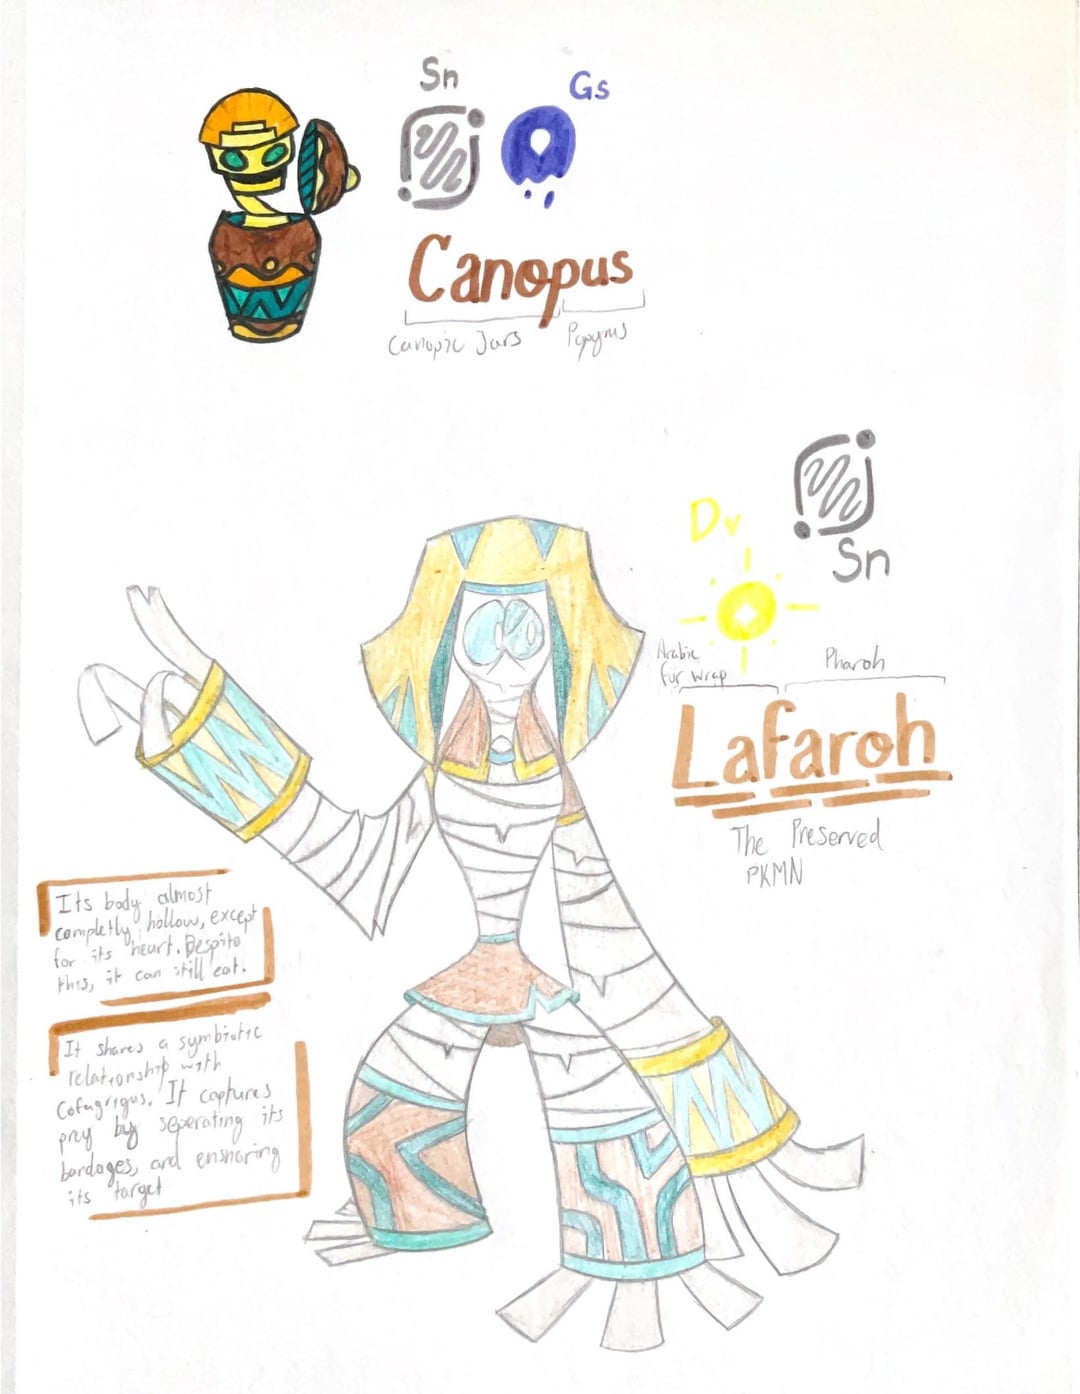 Sn
Gs
Canopus
Canopic Jars
Papyrus
Dv
Sn
Arabic
for wrap
Pharoh
Lafaroh
The Preserved
PKMN
Its body almost
completly hollow, except
for its heart. Despite
this, it can still eat.
It shares a symbiotic
relationship with
Cofagrigus. It captures
prey by seperating its
bandages, and ensnaring
its target